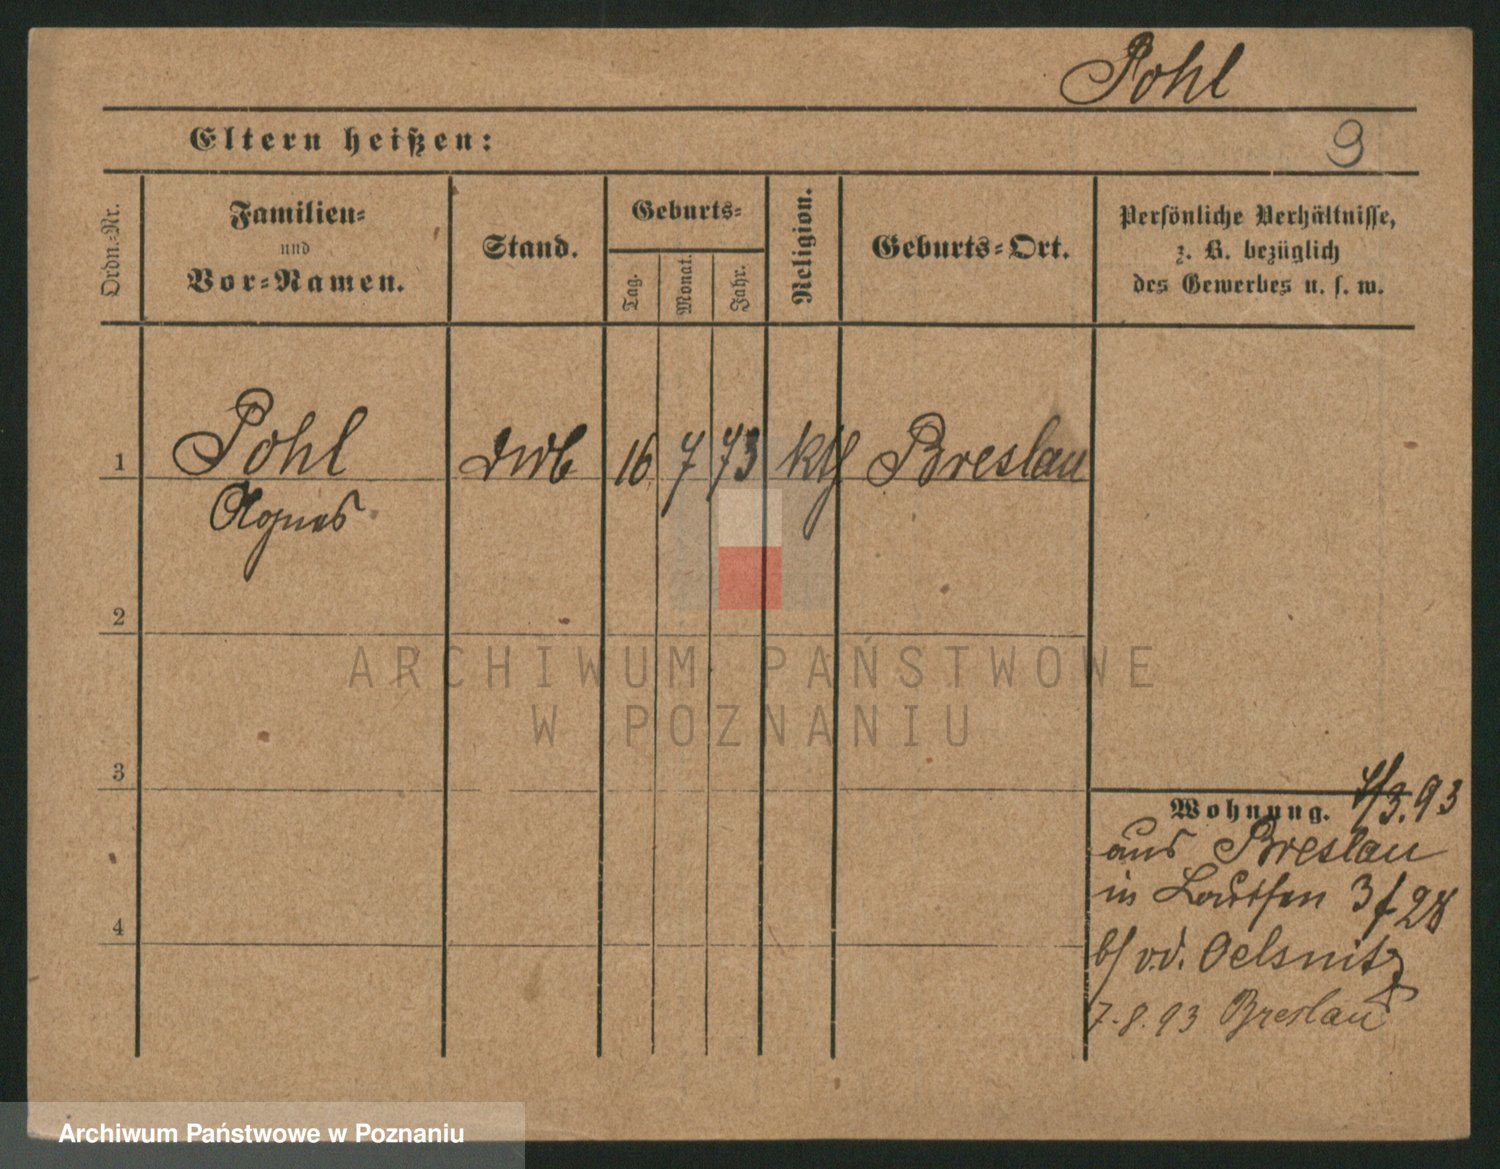 Pohl
9
Eltern heißen:
Ordn.-Nr.
Familien-
und
Vor-Namen.
Stand.
Geburts-
Tag.
Monat.
Jahr.
Religion.
Geburts-Ort.
Persönliche Verhältnisse,
z. B. bezüglich
des Gewerbes u. s. w.
1 Pohl 16 7 73 kth Breslau
Agnes
2
ARCHIWUM PAŃSTWOWE
W POZNANIU
3
Wohnung. /3.93
aus Breslau
in 3 f 28
b/ v.d. Oelsnitz
4
7.8.93 Breslau
Archiwum Państwowe w Poznaniu